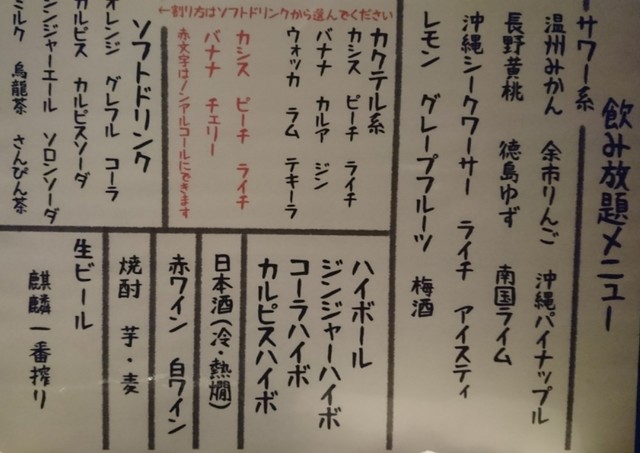 飲み放題メニュー
サワー系
温州みかん 余市りんご 沖縄パイナップル
長野黄桃 徳島ゆず 南国ライム
沖縄シークワーサー ライチ アイスティ
レモン グレープフルーツ 梅酒
カクテル系
カシス ピーチ ライチ
バナナ カルア ジン
ウォッカ ラム テキーラ
カシス ピーチ ライチ
バナナ チェリー
赤文字はノンアルコールにできます
←割り方はソフトドリンクから選んでください
ソフトドリンク
オレンジ グレフル コーラ
カルピス カルピスソーダ
ジンジャーエール ソロンソーダ
ミルク 烏龍茶 さんぴん茶
ハイボール
ジンジャーハイボ
コーラハイボ
カルピスハイボ
日本酒(冷・熱燗)
赤ワイン 白ワイン
焼酎 芋・麦
生ビール
麒麟一番搾り